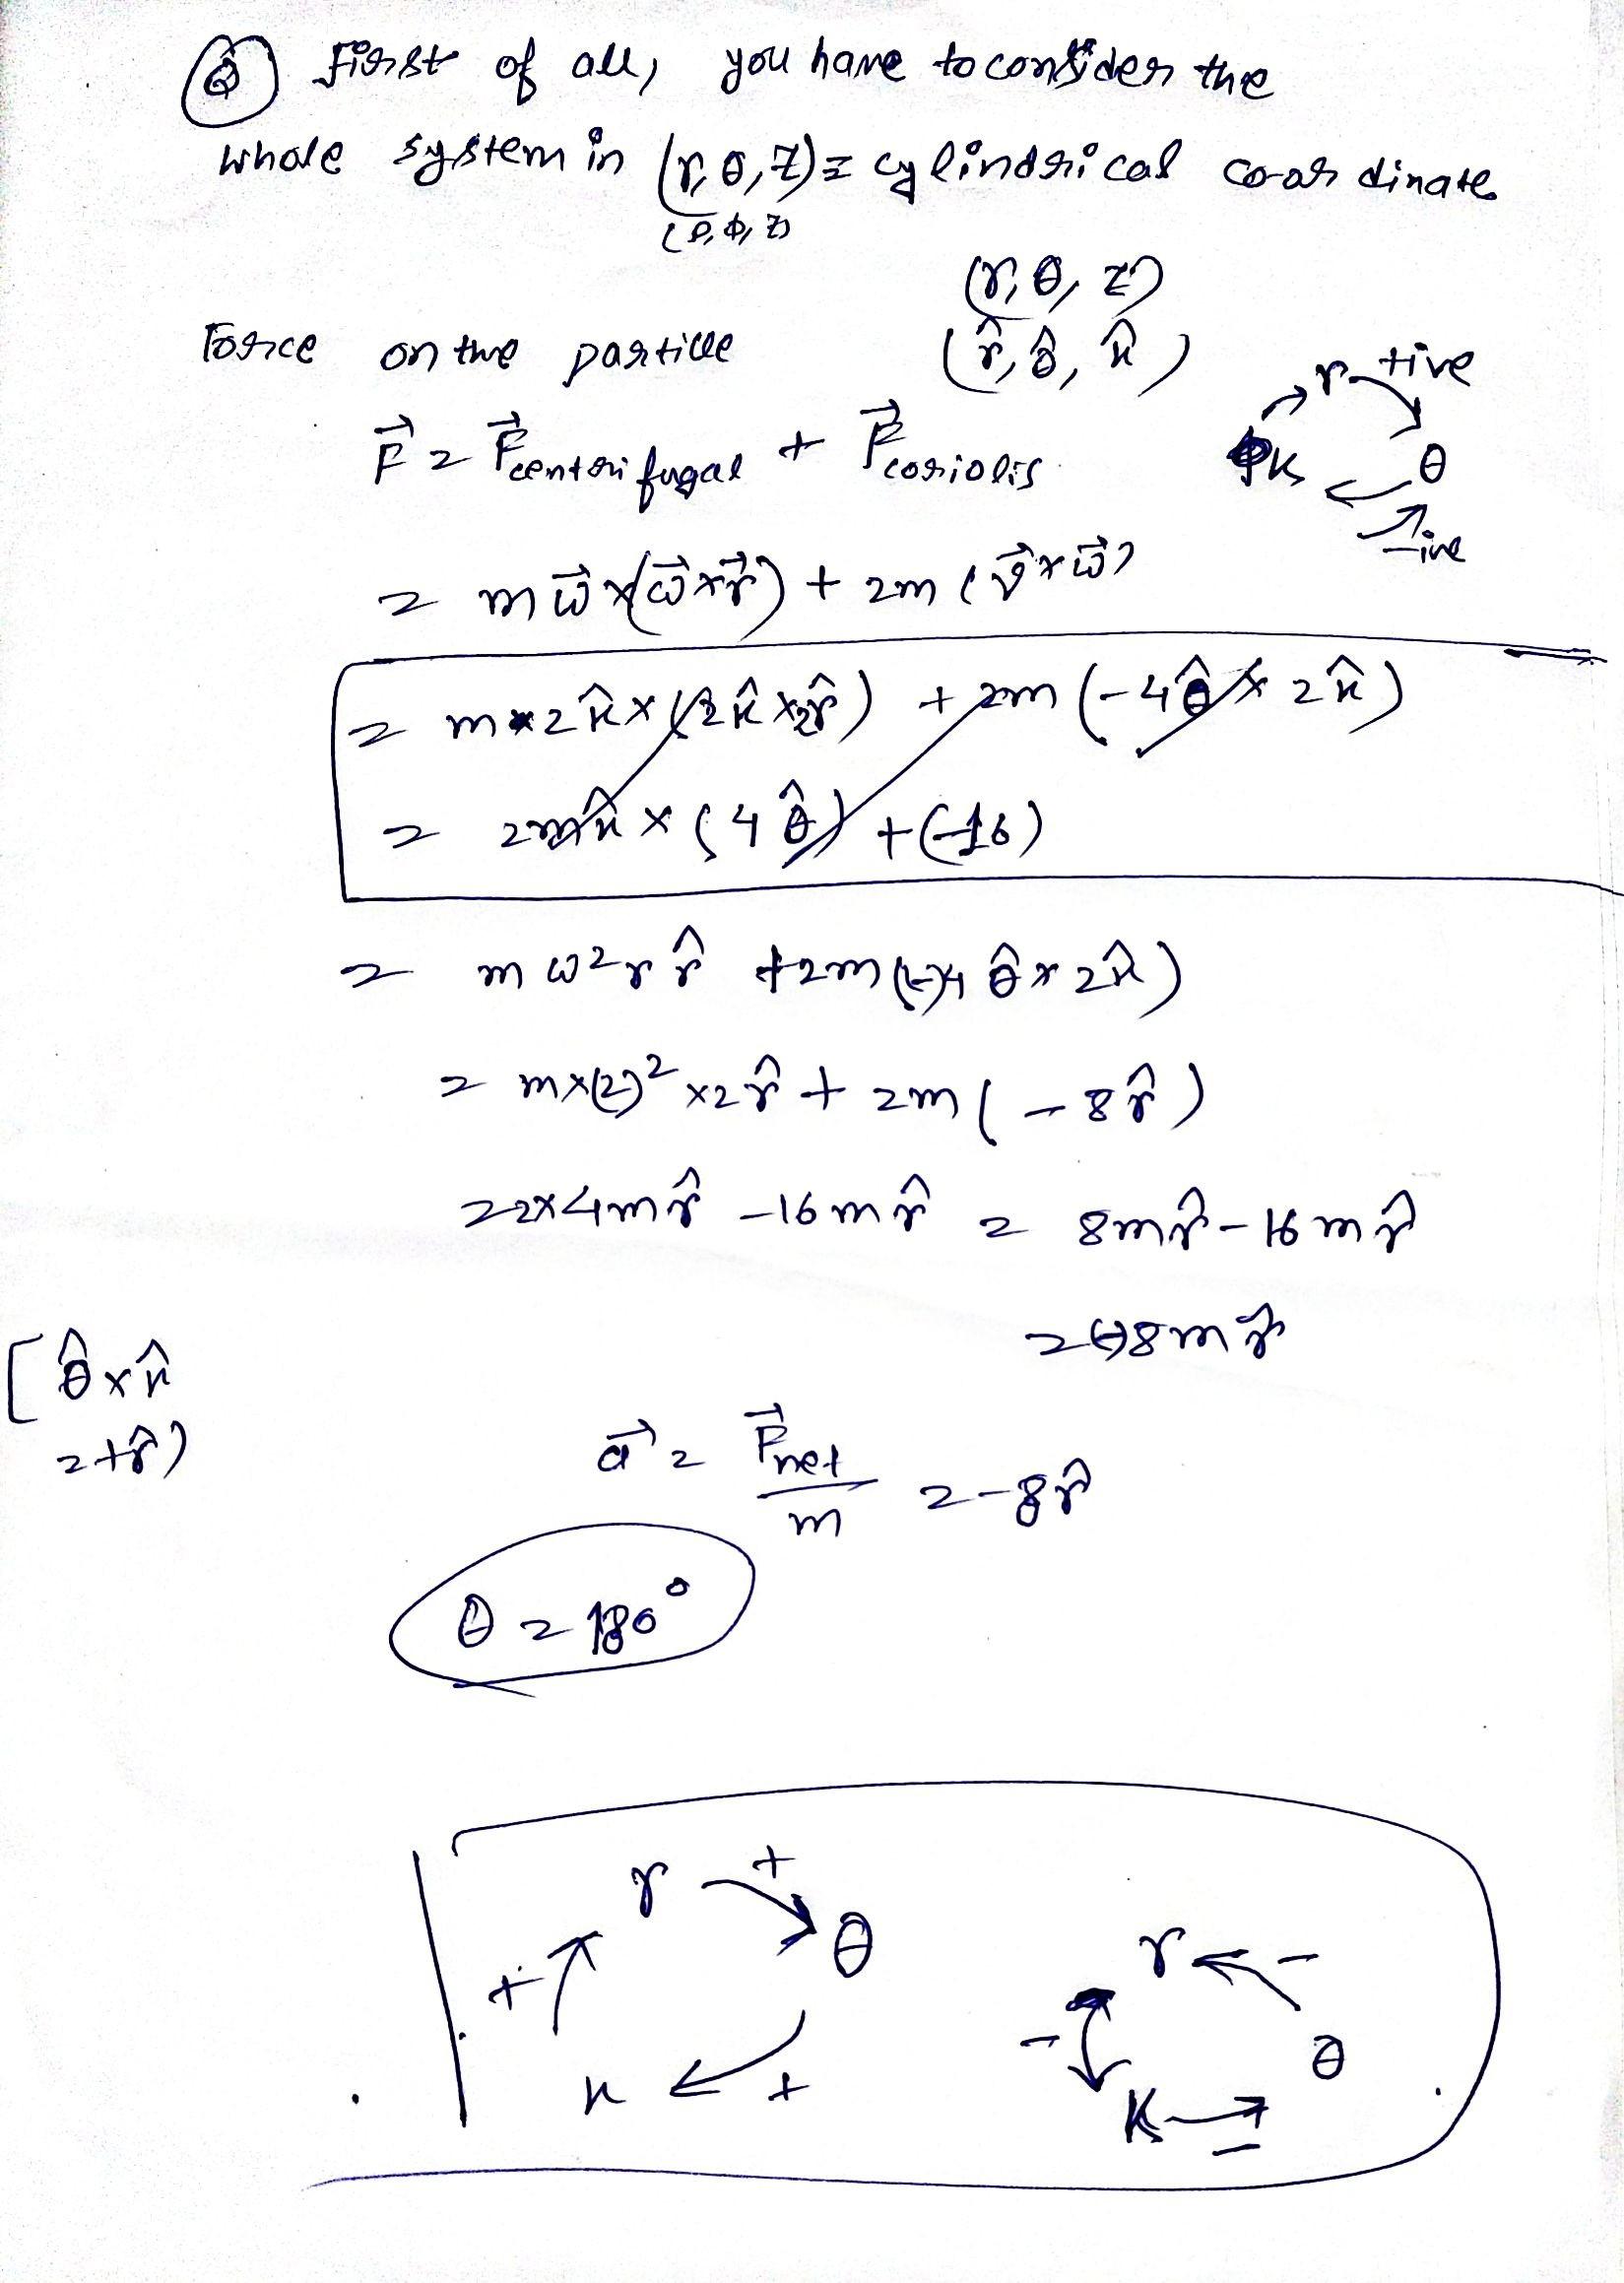 Q First of all, you have to consider the
whole system in (r, θ, z) = cylindrical co-ordinate
(ρ, φ, z)
(r, θ, z)
Force on the particle (r̂, θ̂, k̂)
r +ive
F⃗ = F⃗centrifugal + F⃗coriolis
k θ
-ive
= m ω⃗ × (ω⃗ × r⃗) + 2m (v⃗ × ω⃗)
= m × 2k̂ × (2k̂ × 2r̂) + 2m (-4θ̂ × 2k̂)
= 2mk̂ × (4θ̂) + (-16)
= mω²r r̂ + 2m(-)4 θ̂ × 2k̂)
= m×(2)² ×2r̂ + 2m ( -8r̂ )
= 2×4mr̂ -16mr̂ = 8mr̂ - 16mr̂
= (-)8mr̂
[θ̂ × k̂
= +r̂)
a⃗ = F⃗net / m = -8r̂
θ = 180°
r + θ
+ r -
- θ
k +
k -